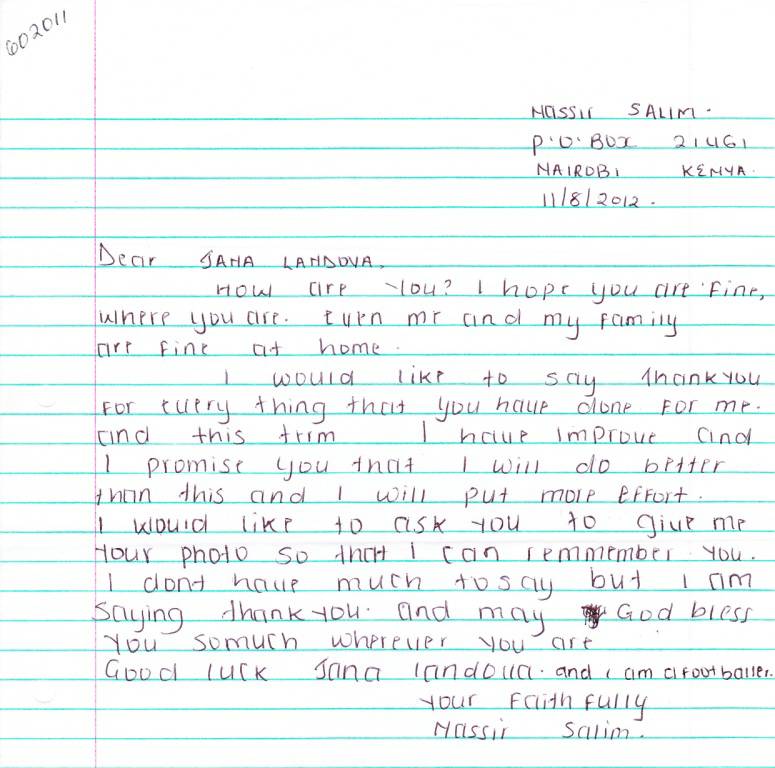 602011
Nassir SALIM.
P.O. BOX 21461
NAIROBI KENYA.
11/8/2012.
Dear JANA LANDOVA,
How are you? I hope you are fine,
where you are. Even me and my family
are fine at home.
I would like to say thankyou
For every thing that you have done For me.
and this term I have improve and
I promise you that I will do better
than this and I will put more effort.
I would like to ask you to give me
your photo so that I can remmember you.
I dont have much tosay but I am
saying thank you. and may God bless
you somuch wherever you are
Good luck Jana landova. and i am a footballer.
your Faith fully
Nassir Salim.